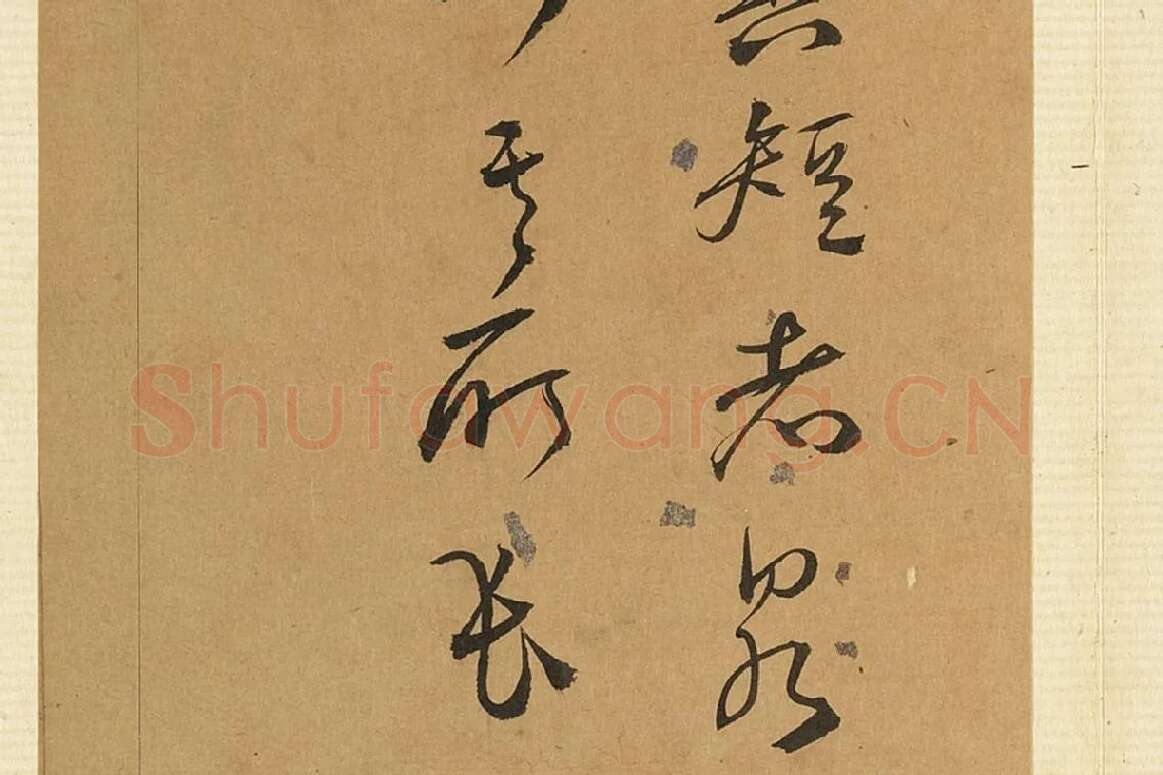 短者眾
其所長
Shufawang.CN